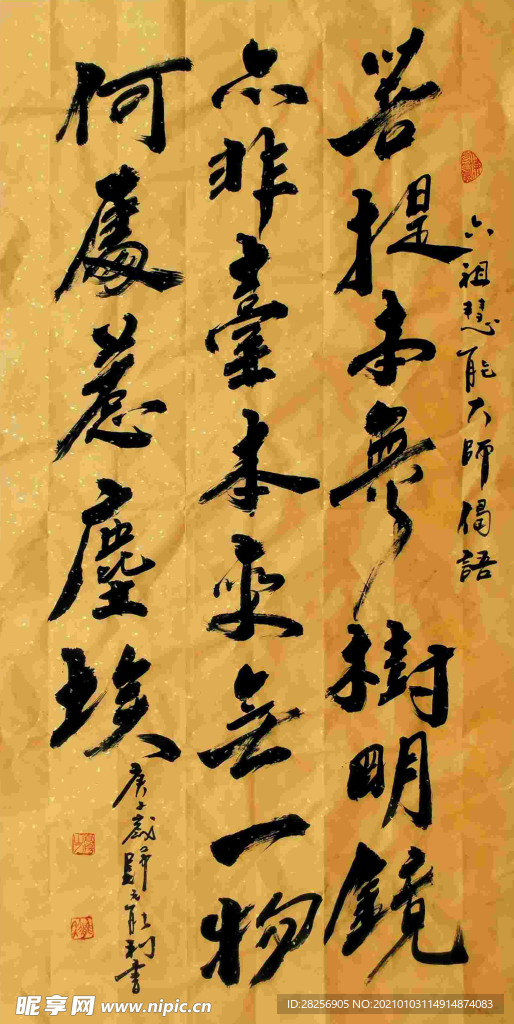 六祖慧能大師偈語
菩提本無樹明鏡
亦非臺本來無一物
何處惹塵埃
庚子歲 能利書
昵享网 www.nipic.cn
ID:28256905 NO:20210103114914874083